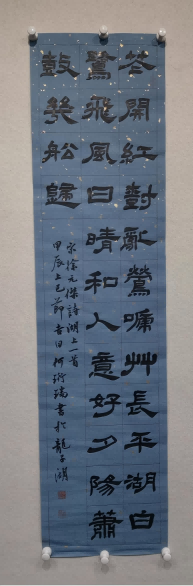 花開紅樹亂鶯嗁艸長平湖白
鷺飛風日晴和人意好夕陽蕭
鼓幾船歸
宋徐元傑詩湖上一首
甲辰上巳節吉日何瑞書於龍子湖